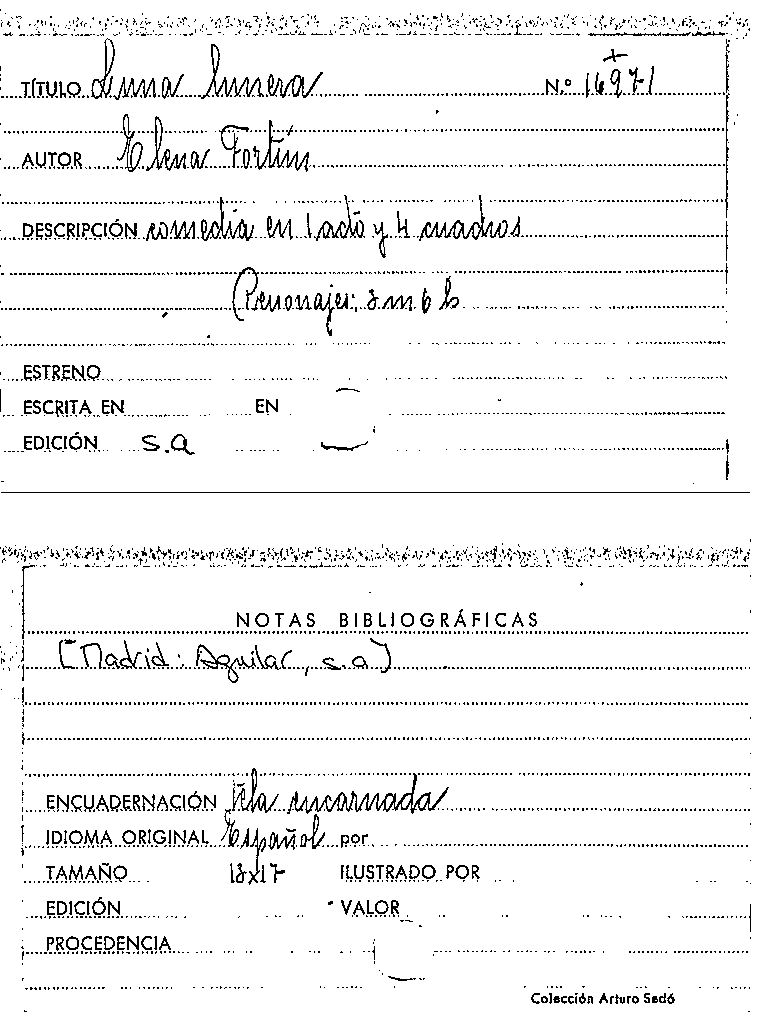 TÍTULO Luna lunera N.º 16971
AUTOR Elena Fortún
DESCRIPCIÓN comedia en 1 acto y 4 cuadros
(Personajes: 8 m 6 h
ESTRENO
ESCRITA EN EN
EDICIÓN S.a
NOTAS BIBLIOGRÁFICAS
[Madrid: Aguilar, s.a]
ENCUADERNACIÓN Tela encarnada
IDIOMA ORIGINAL Español por
TAMAÑO 13x17 ILUSTRADO POR
EDICIÓN VALOR
PROCEDENCIA
Colección Arturo Sedó